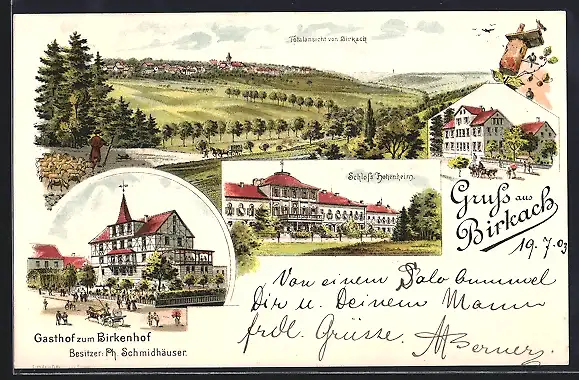 Totalansicht von Birkach
Schloß Hohenheim
Gruss aus
Birkach
19.7.03
Gasthof zum Birkenhof
Besitzer: Ph. Schmidhäuser.
Von einem Solo bummel
Dir u. Deinem Mann
frdl. Grüsse.